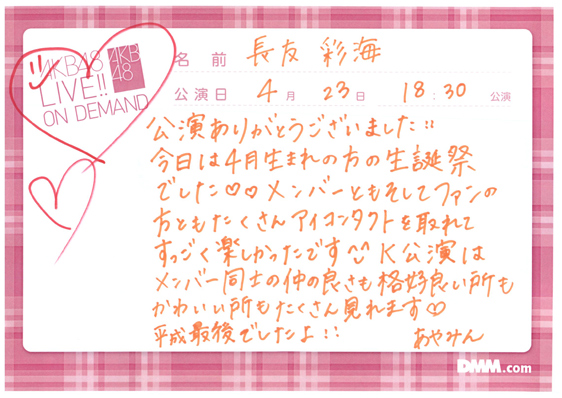 AKB48
LIVE!!
ON DEMAND
AKB
48
名前 長友 彩海
公演日 4月 23日 18:30 公演
公演ありがとうございました!!
今日は4月生まれの方の生誕祭
でした♡♡メンバーともそしてファンの
方ともたくさんアイコンタクトを取れて
すっごく楽しかったです^^ K公演は
メンバー同士の仲の良さも格好良い所も
かわいい所もたくさん見れます♡
平成最後でしたよ!! あやみん
DMM.com